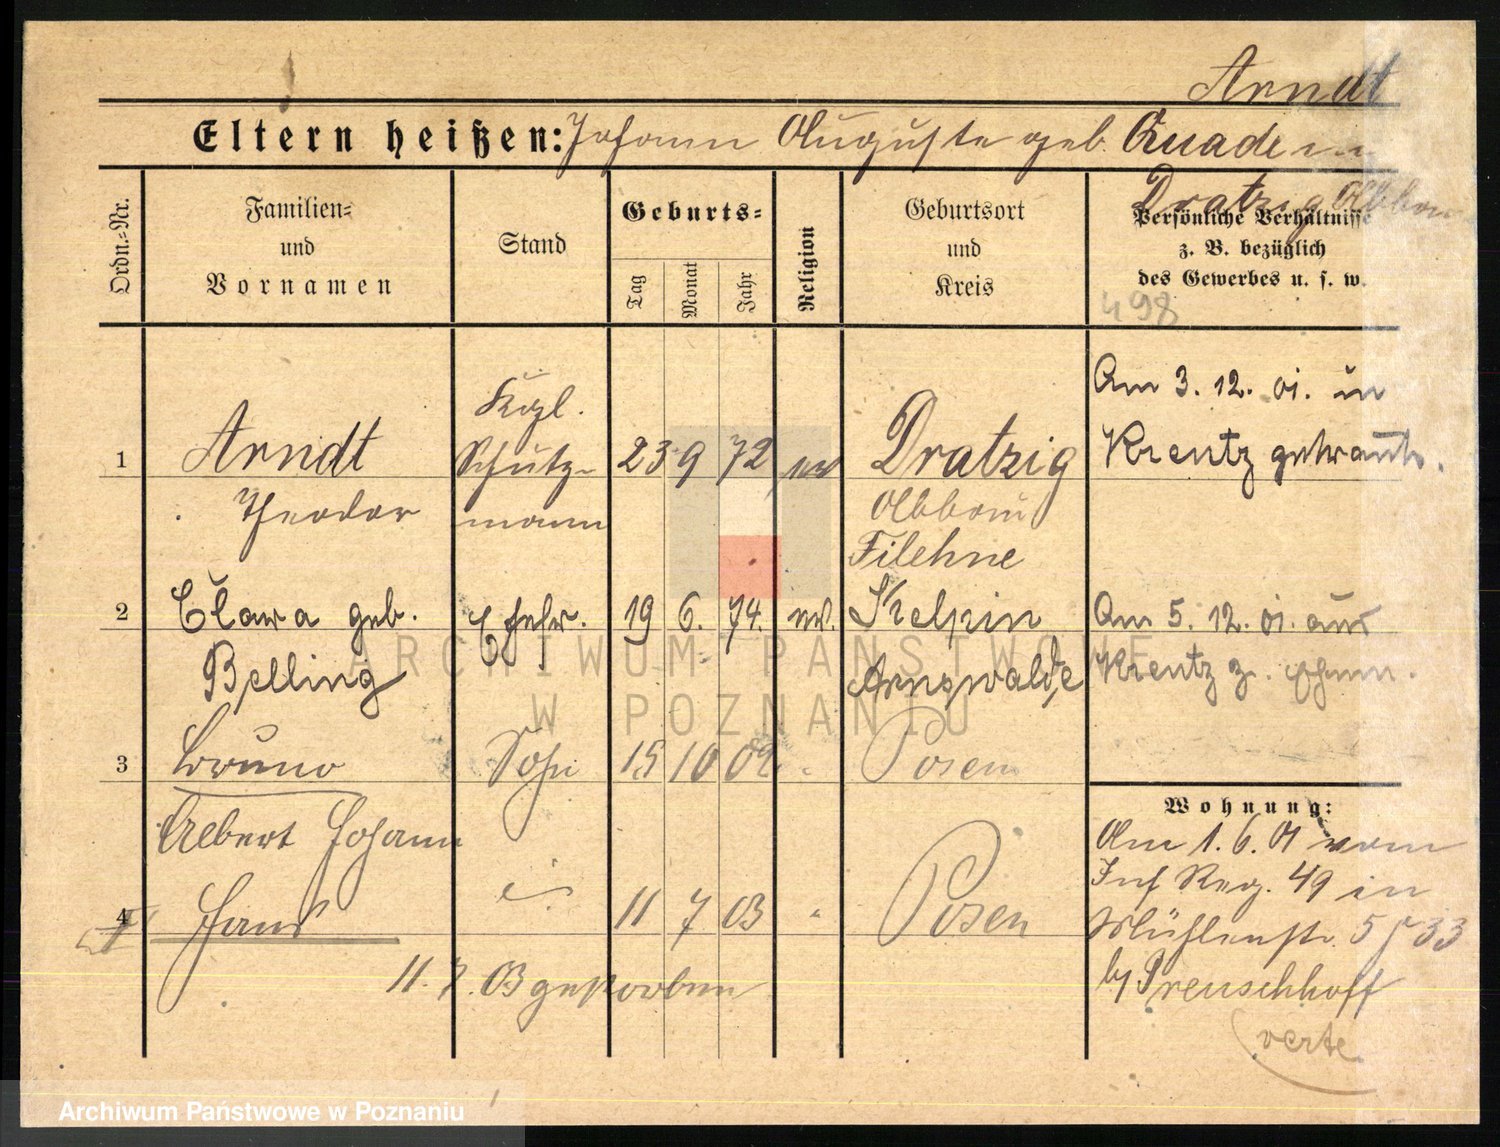 Arndt
Eltern heißen: Johann Auguste geb. Quade in
Dratzig Abbau
Ordn.-Nr.
Familien-
und
Vornamen
Stand
Geburts-
Tag
Monat
Jahr
Religion
Geburtsort
und
Kreis
Persönliche Verhältnisse
z. B. bezüglich
des Gewerbes u. s. w.
498
1
Arndt
Theodor
Kgl.
Schutz-
mann
23 9 72
ev
Dratzig
Abbau
Filehne
Am 3. 12. 01. in
Kreutz getraut.
2
Clara geb.
Belling
Ehefr.
19 6. 74.
ev.
Arnswalde
Am 5. 12. 01. aus
Kreutz z.
3
Bruno
Albert Johann
Sohn
15 10 02
Posen
4
Hans
11 7 03
"
Posen
11. 7. 03 gestorben
Wohnung:
Am 1. 6. 01 vom
Inf Reg. 49 in
Mühlenstr. 5 33
by Preuschhoff
verte
ARCHIWUM PAŃSTWOWE
W POZNANIU
Archiwum Państwowe w Poznaniu